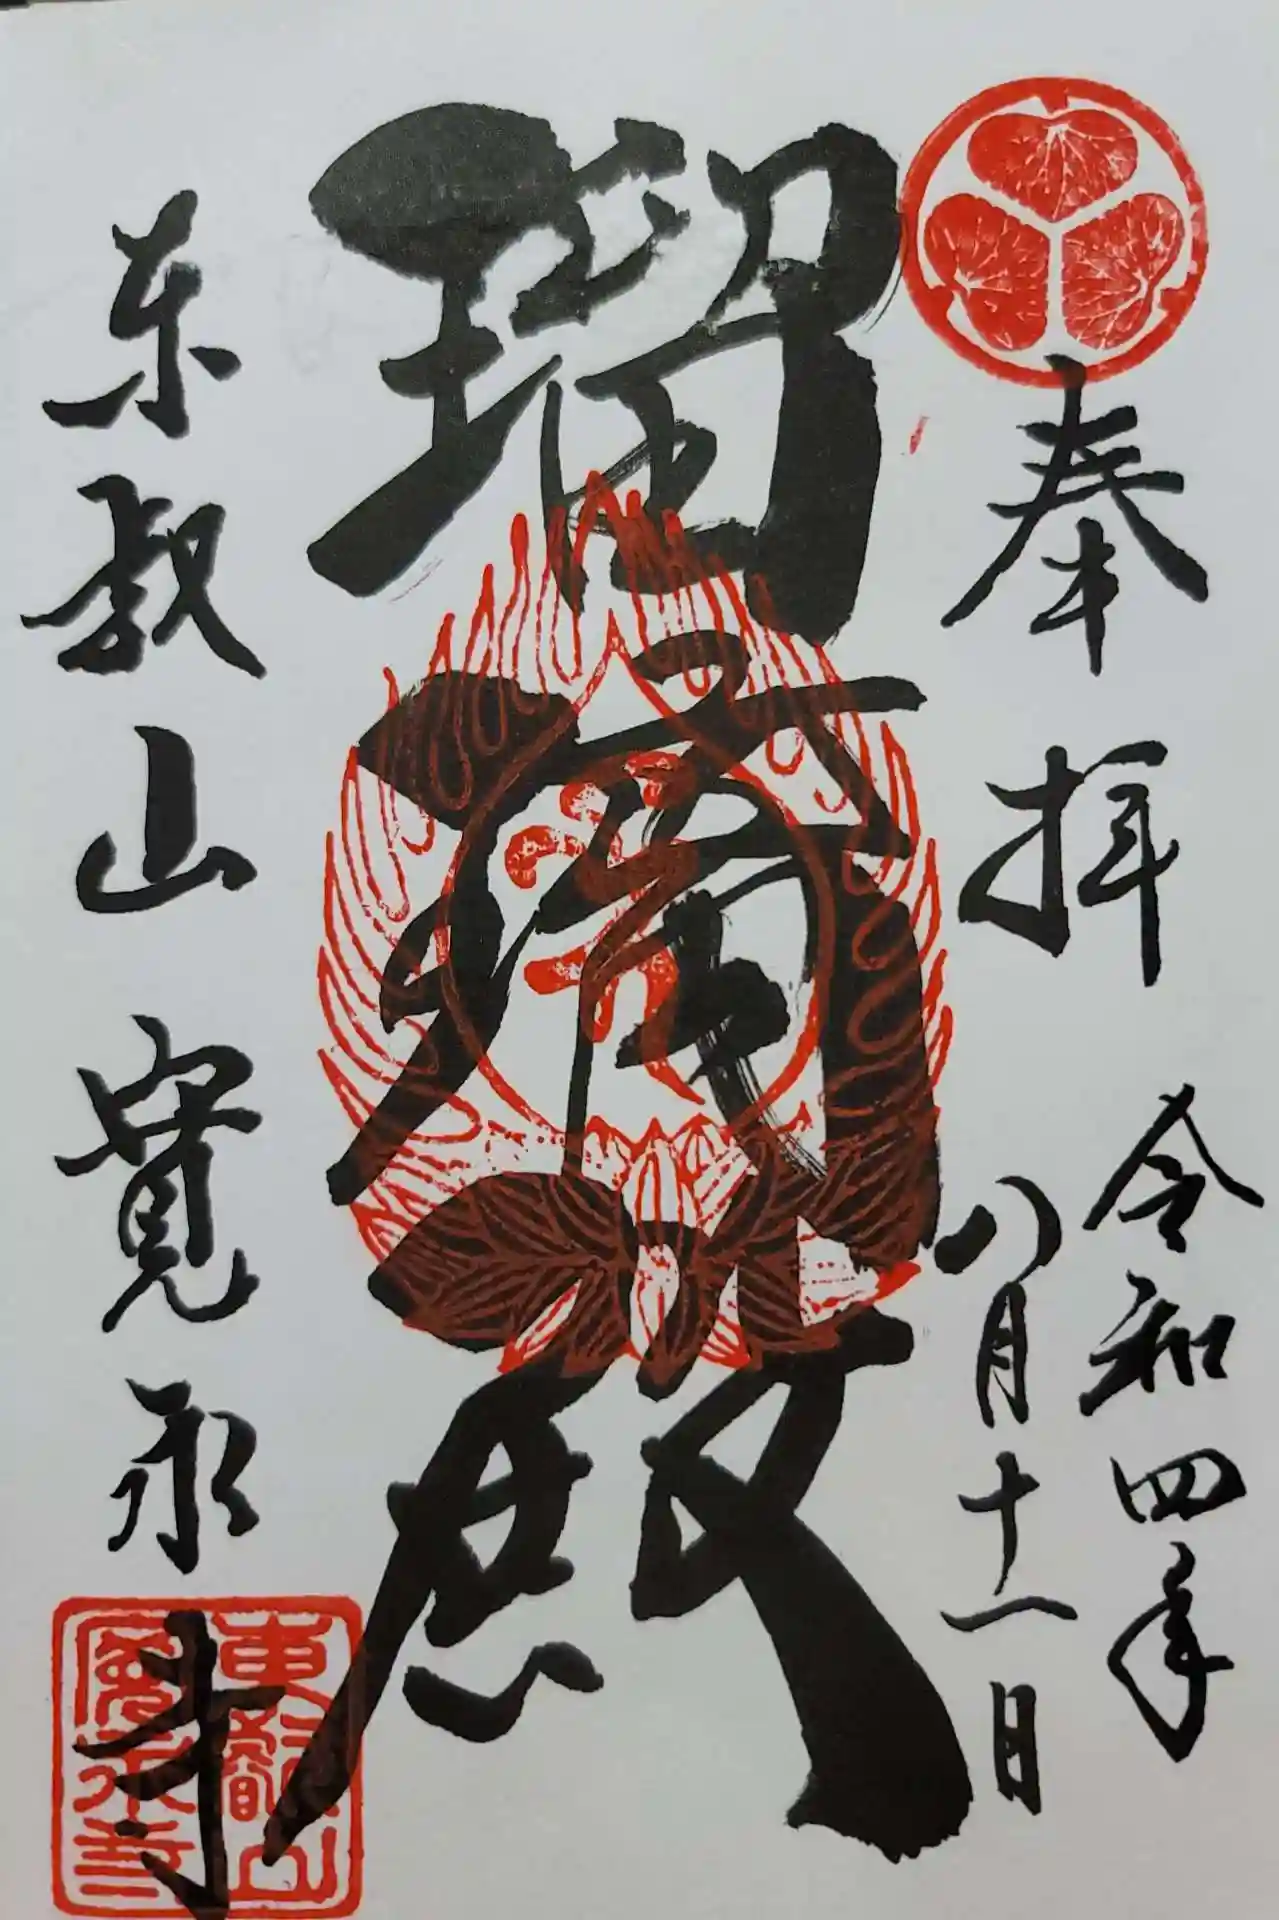 奉拝
令和四年
八月十一日
瑠璃殿
东叡山寛永寺
東叡山
寛永寺